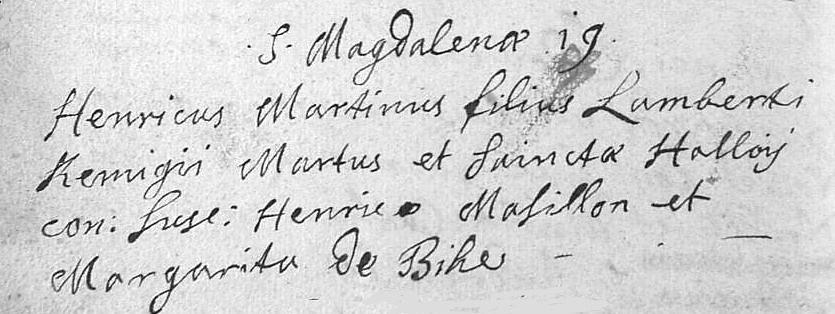 S. Magdalenæ 19.
Henricus Martinus filius Lamberti
Remigii Martus et Sainctæ Halloij
con: Susc: Henrico Masillon et
Margarita de Bihe